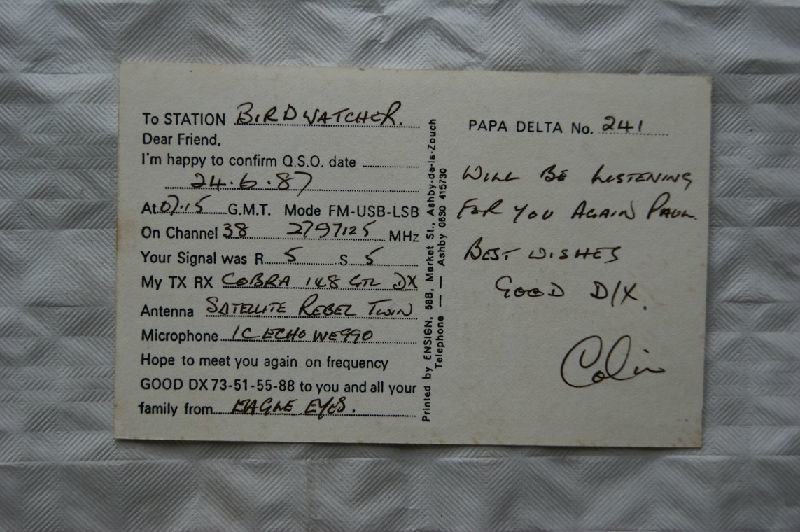 To STATION BIRDWATCHER.
Dear Friend.
I'm happy to confirm Q.S.O. date
24.6.87
At 07.15 G.M.T. Mode FM-USB-LSB
On Channel 38 2797125 MHz
Your Signal was R 5 S 5
My TX RX COBRA 148 GTL DX
Antenna SATELLITE REBEL TWIN
Microphone IC ECHO WE990
Hope to meet you again on frequency
GOOD DX 73-51-55-88 to you and all your
family from EAGLE EYES.
Printed by ENSIGN, 58B, Market St., Ashby-de-la-Zouch
Telephone — Ashby 0530 415730
PAPA DELTA No. 241
WILL BE LISTENING
FOR YOU AGAIN PAUL.
BEST WISHES
GOOD D/X.
Colin